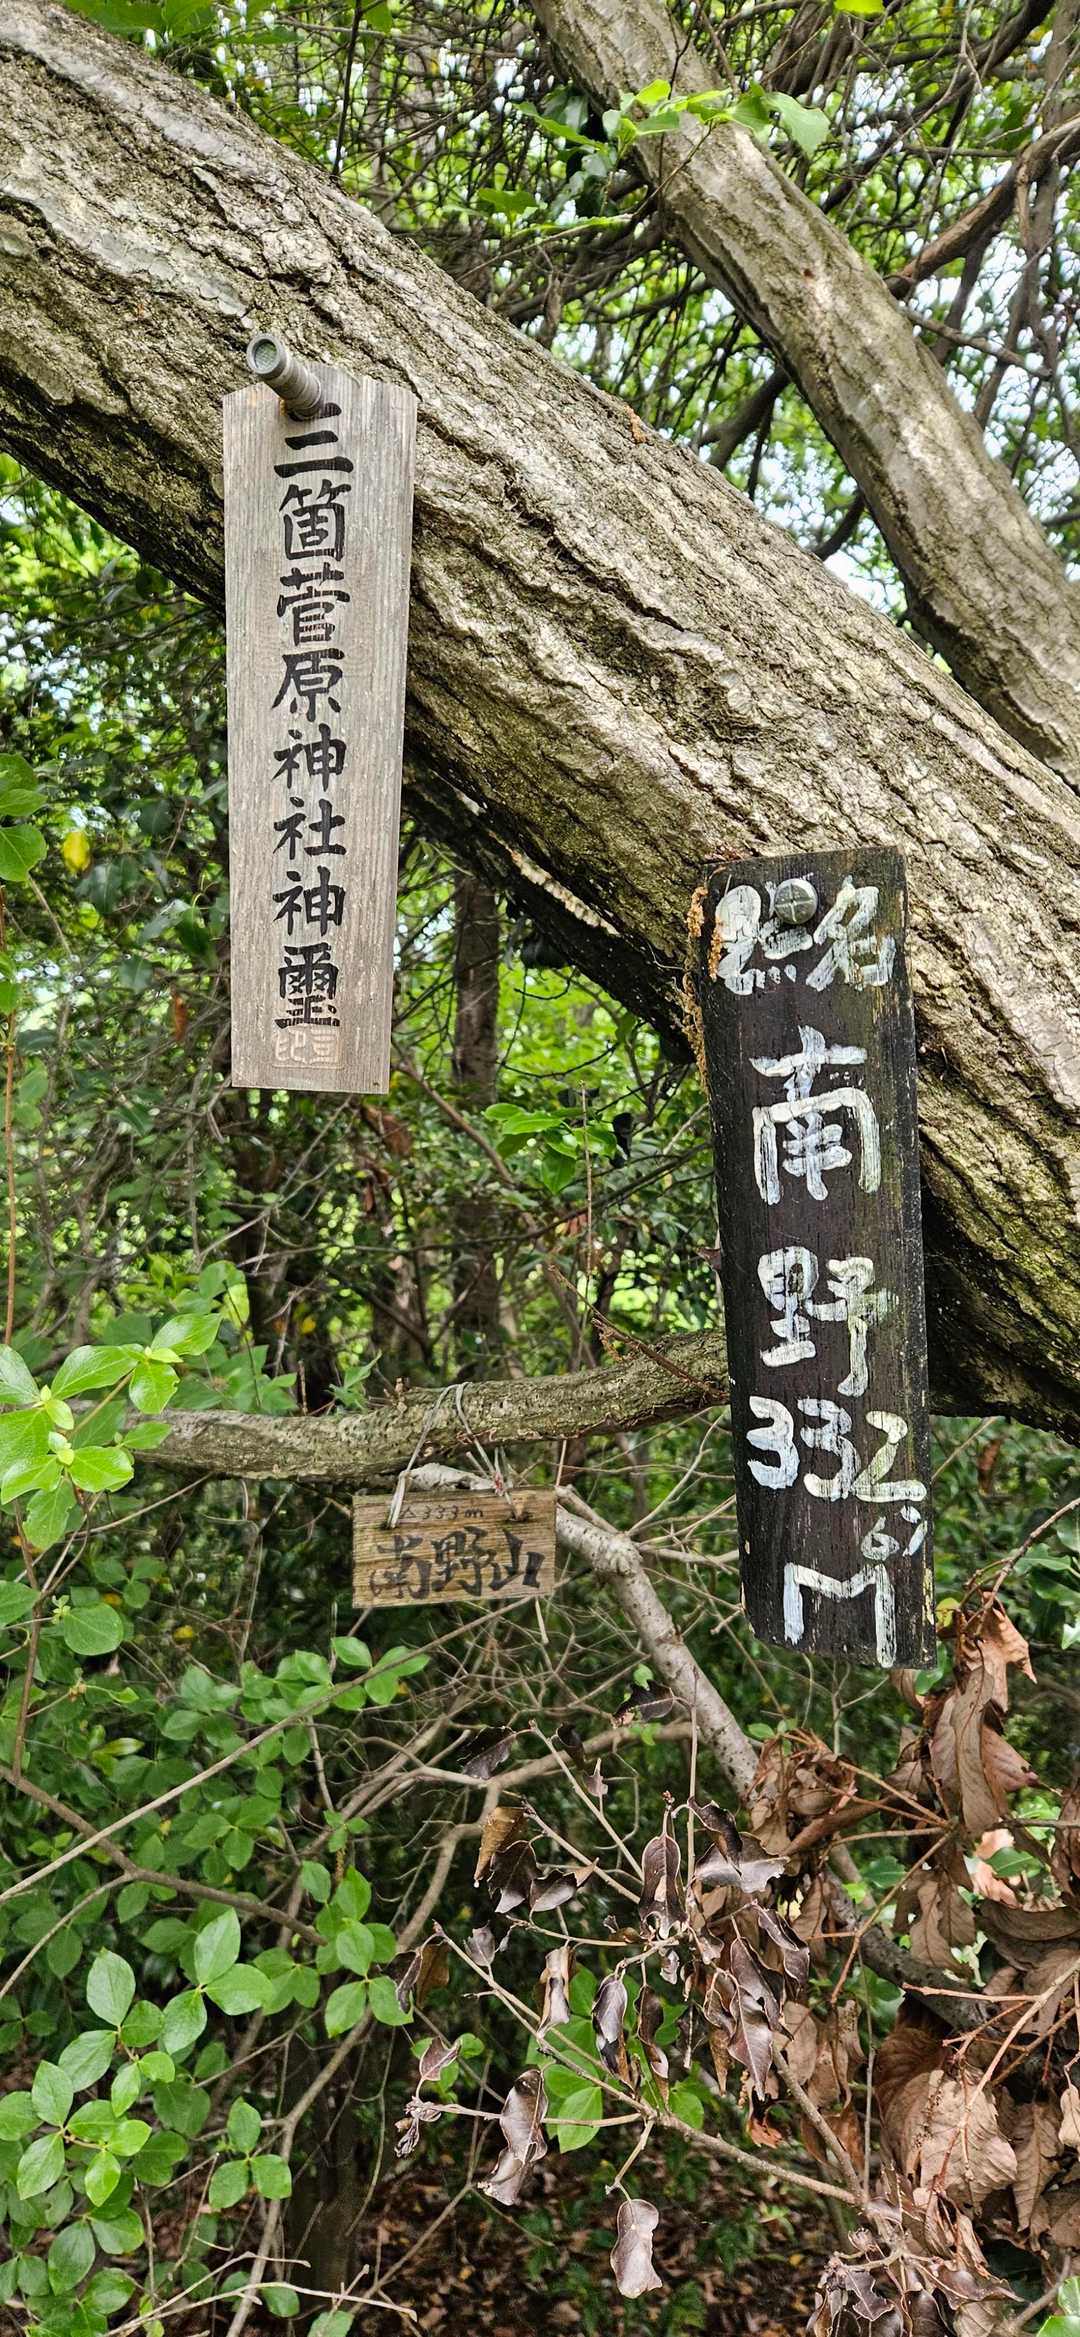 三箇菅原神社神璽
點名
南野
332
M
△333m
南野山